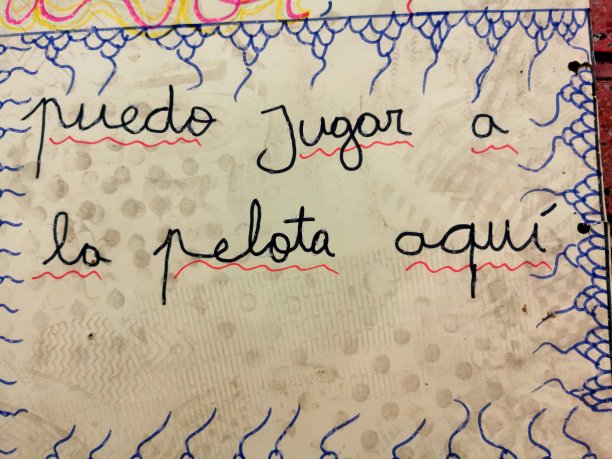 puedo jugar a
la pelota aquí